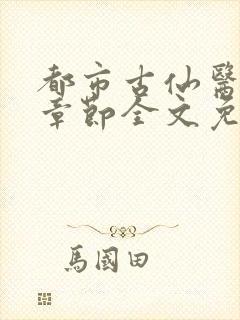 都市古仙醫
章節全文免
馬國田